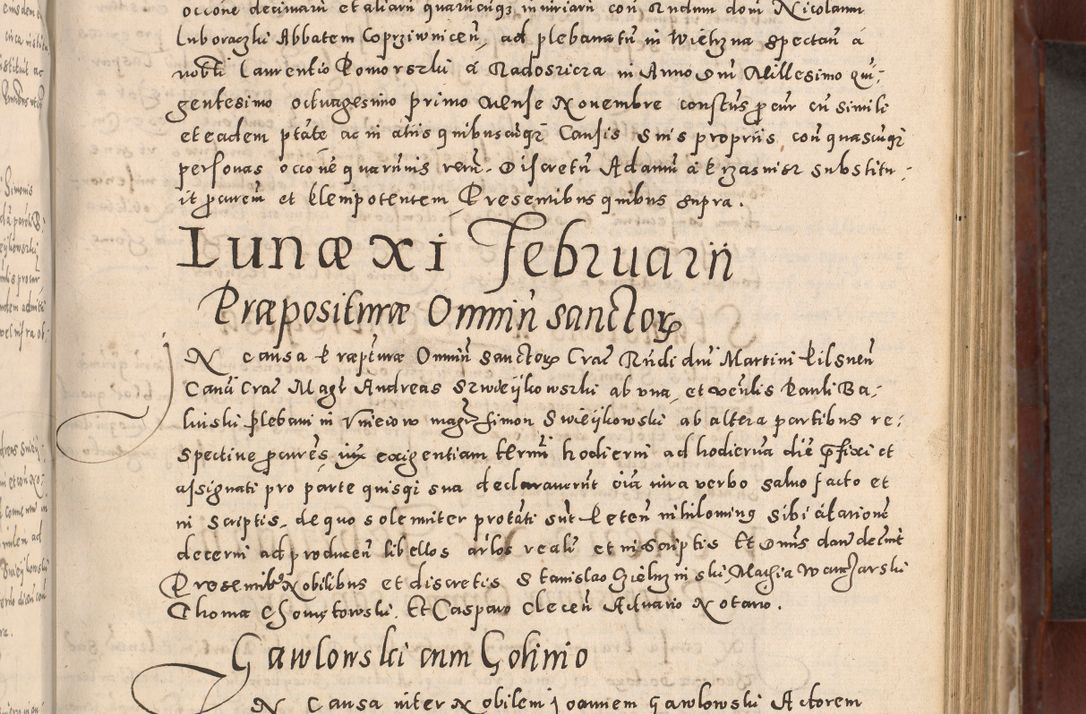 occone decimaru et aliaru quarucuqz iniuriaru con Rndum dom Nicolaum
Luboraczki Abbatem Coprziwnicen, ad plebanatu in Wielzna spectan a
nobli Laurentio Pomorszki a Radoszicza in Anno dni Millesimo qui-
gentesimo octuagesimo primo Mense Nouembre constus pcur cu simili
et eadem ptate ac in aliis quibuscuqz Causis suis propriis, con quascuqz
personas occone quarumis reru. Discretu Adamu a Krzasnisz substitu-
it pcurem et plenipotentem, Presentibus quibus supra.
Lunæ XI Februarii
Præpositura Omniu Sanctor
IN causa Præpturæ Omniu Sanctor Crac Rndi dni Martini Pilsnen
Cani Crac Magr Andreas Szweykowszki ab vna, et venlis Pauli Ba-
linski plebani in Vnieiow magr Simon Swieykowski ab altera partibus re-
spectiue pcures, iux exigentiam termi hodierni ad hodierna die pfixi et
assignati pro parte quisqi sua declarauerut oia iura verbo saluo facto et
in scriptis, de quo solemniter protati sut Peten nihilominq sibi citatione
decerni ad producen libellos arlos reali et in scriptis Et Dnus dand decreuit
Presentibus Nobilibus et discretis Stanislao Gielzinski Mathia Wanszarski
Thoma Chometowski. Et Casparo Clecen Actuario Notario.
Gawlowski cum Golinio
IN Causa inter Nobilem Joannem Gawlowski Actorem